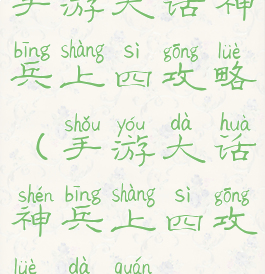 手游大话神
bīng shàng sì gōng lüè
兵上四攻略
shǒu yóu dà huà
(手游大话
shén bīng shàng sì gōng
神兵上四攻
lüè dà quán